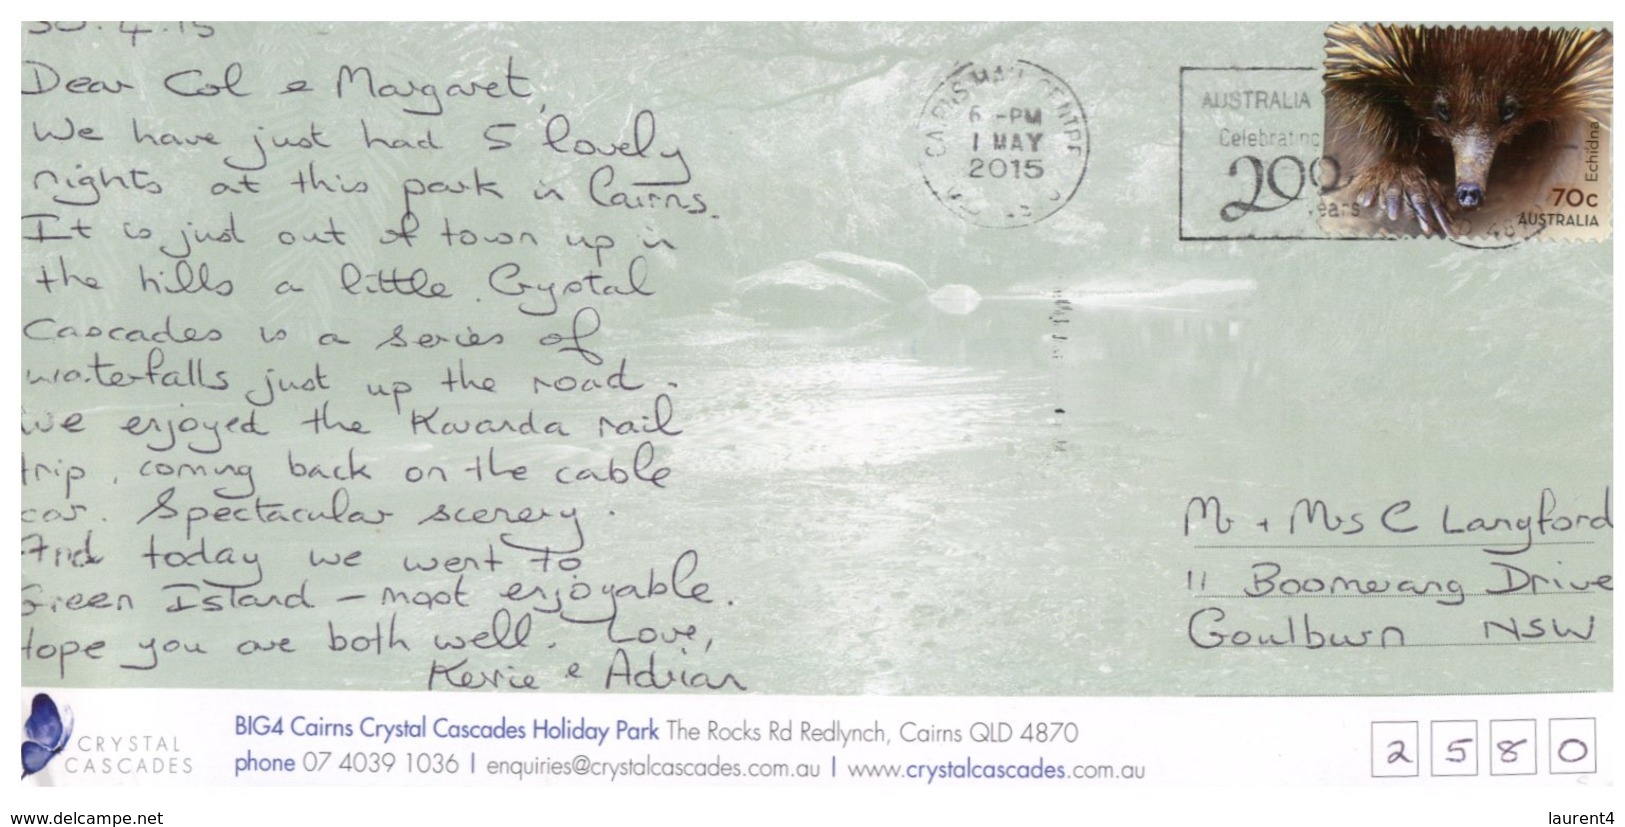 30.4.15
Dear Col & Margaret,
We have just had 5 lovely
nights at this park in Cairns.
It is just out of town up in
the hills a little. Crystal
Cascades is a series of
waterfalls just up the road.
We enjoyed the Kuranda rail
trip, coming back on the cable
car. Spectacular scenery.
And today we went to
Green Island – most enjoyable.
Hope you are both well. Love,
Kerrie & Adrian
CAIRNS MAIL CENTRE
6 -PM
1 MAY
2015
AUSTRALIA
Celebrating
200
years
Echidna
70c
AUSTRALIA
Mr + Mrs C Langford
11 Boomerang Drive
Goulburn NSW
2580
CRYSTAL
CASCADES
BIG4 Cairns Crystal Cascades Holiday Park The Rocks Rd Redlynch, Cairns QLD 4870
phone 07 4039 1036 | enquiries@crystalcascades.com.au | www.crystalcascades.com.au
www.delcampe.net
laurent4